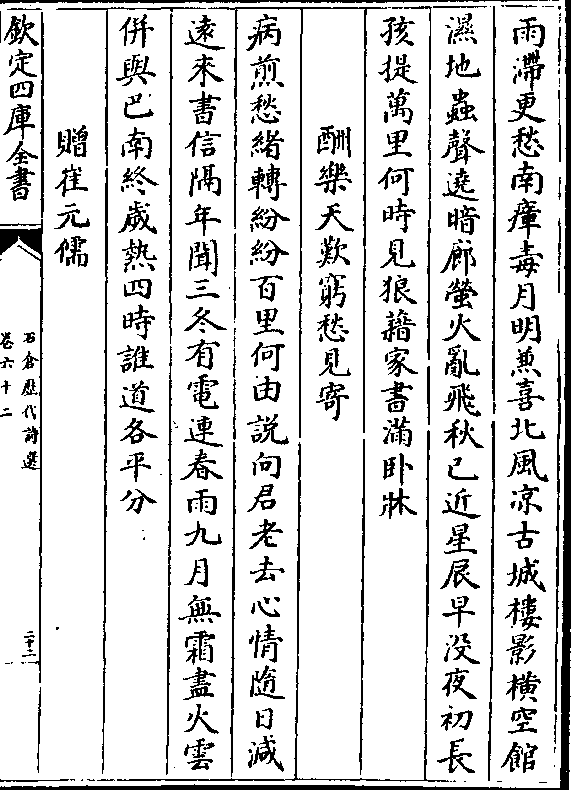 雨滯更愁南瘴毒月明兼喜北風凉古城樓影横空館
濕地蟲聲遶暗廊螢火亂飛秋已近星辰早没夜初長
孩提萬里何時見狼藉家書滿卧牀
酬樂天歎窮愁見寄
病煎愁緒轉紛紛百里何由説向君老去心情隨日減
逺來書信隔年聞三冬有電連春雨九月無霜盡火雲
併與巴南終歳熱四時誰道各平分
贈崔元儒
欽定四庫全書
石倉歴代詩選
卷六十二
二十二